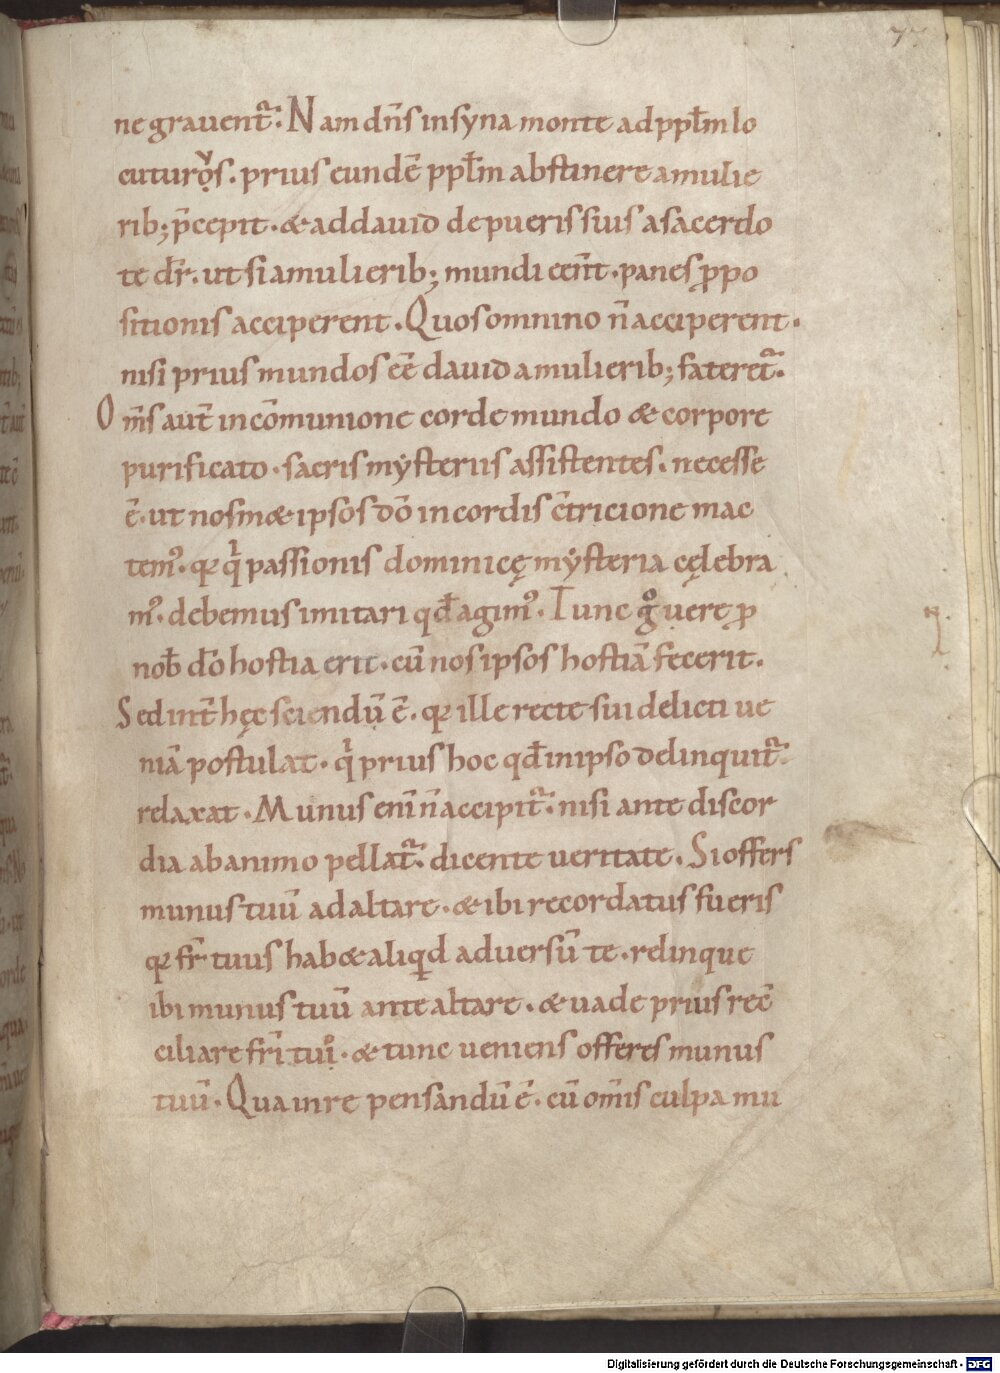 7
ne grauent᷑. Nam dn̄s in syna monte ad ppl̄m lo
cuturos. prius eundē ppl̄m abstinere a mulie
rib; p̄cepit. & ad dauid de pueris suis a sacerdo
te dr̄. ut si a mulierib; mundi eēnt. panes ꝓpo
sitionis acciperent. Quos omnino n̄ acciperent.
nisi prius mundos eē dauid a mulierib; fateret᷑.
Om̄s aut̄ in cōmunione corde mundo & corpore
purificato. sacris mẏsteriis assistentes. necesse
ē. ut nosm& ipsos dō in cordis c̄tricione mac
tem᷒. qꝛ qͥ passionis dominicę mẏsteria cęlebra
m᷒. debemus imitari qđ agim᷒. Tunc gͦ uere ꝓ
nob̄ dō hostia erit. cū nos ipsos hostiā fecerit.
Sed int̄ hęc sciendū ē. qꝛ ille recte sui delicti ue
niā postulat. qͥ prius hoc qđ in ipso delinquit᷑.
relaxat. Munus enī n̄ accipit᷑. nisi ante discor
dia ab animo pellat᷑. dicente ueritate. Si offers
munus tuū ad altare. & ibi recordatus fueris
qꝛ fr̄ tuus hab& aliqͥd aduersū te. relinque
ibi munus tuū ante altare. & uade prius recc̄
ciliare fr̄i tuͦi. & tunc ueniens offeres munus
tuū. Qua in re pensandū ē. cū om̄is culpa mu
Digitalisierung gefördert durch die Deutsche Forschungsgemeinschaft - DFG